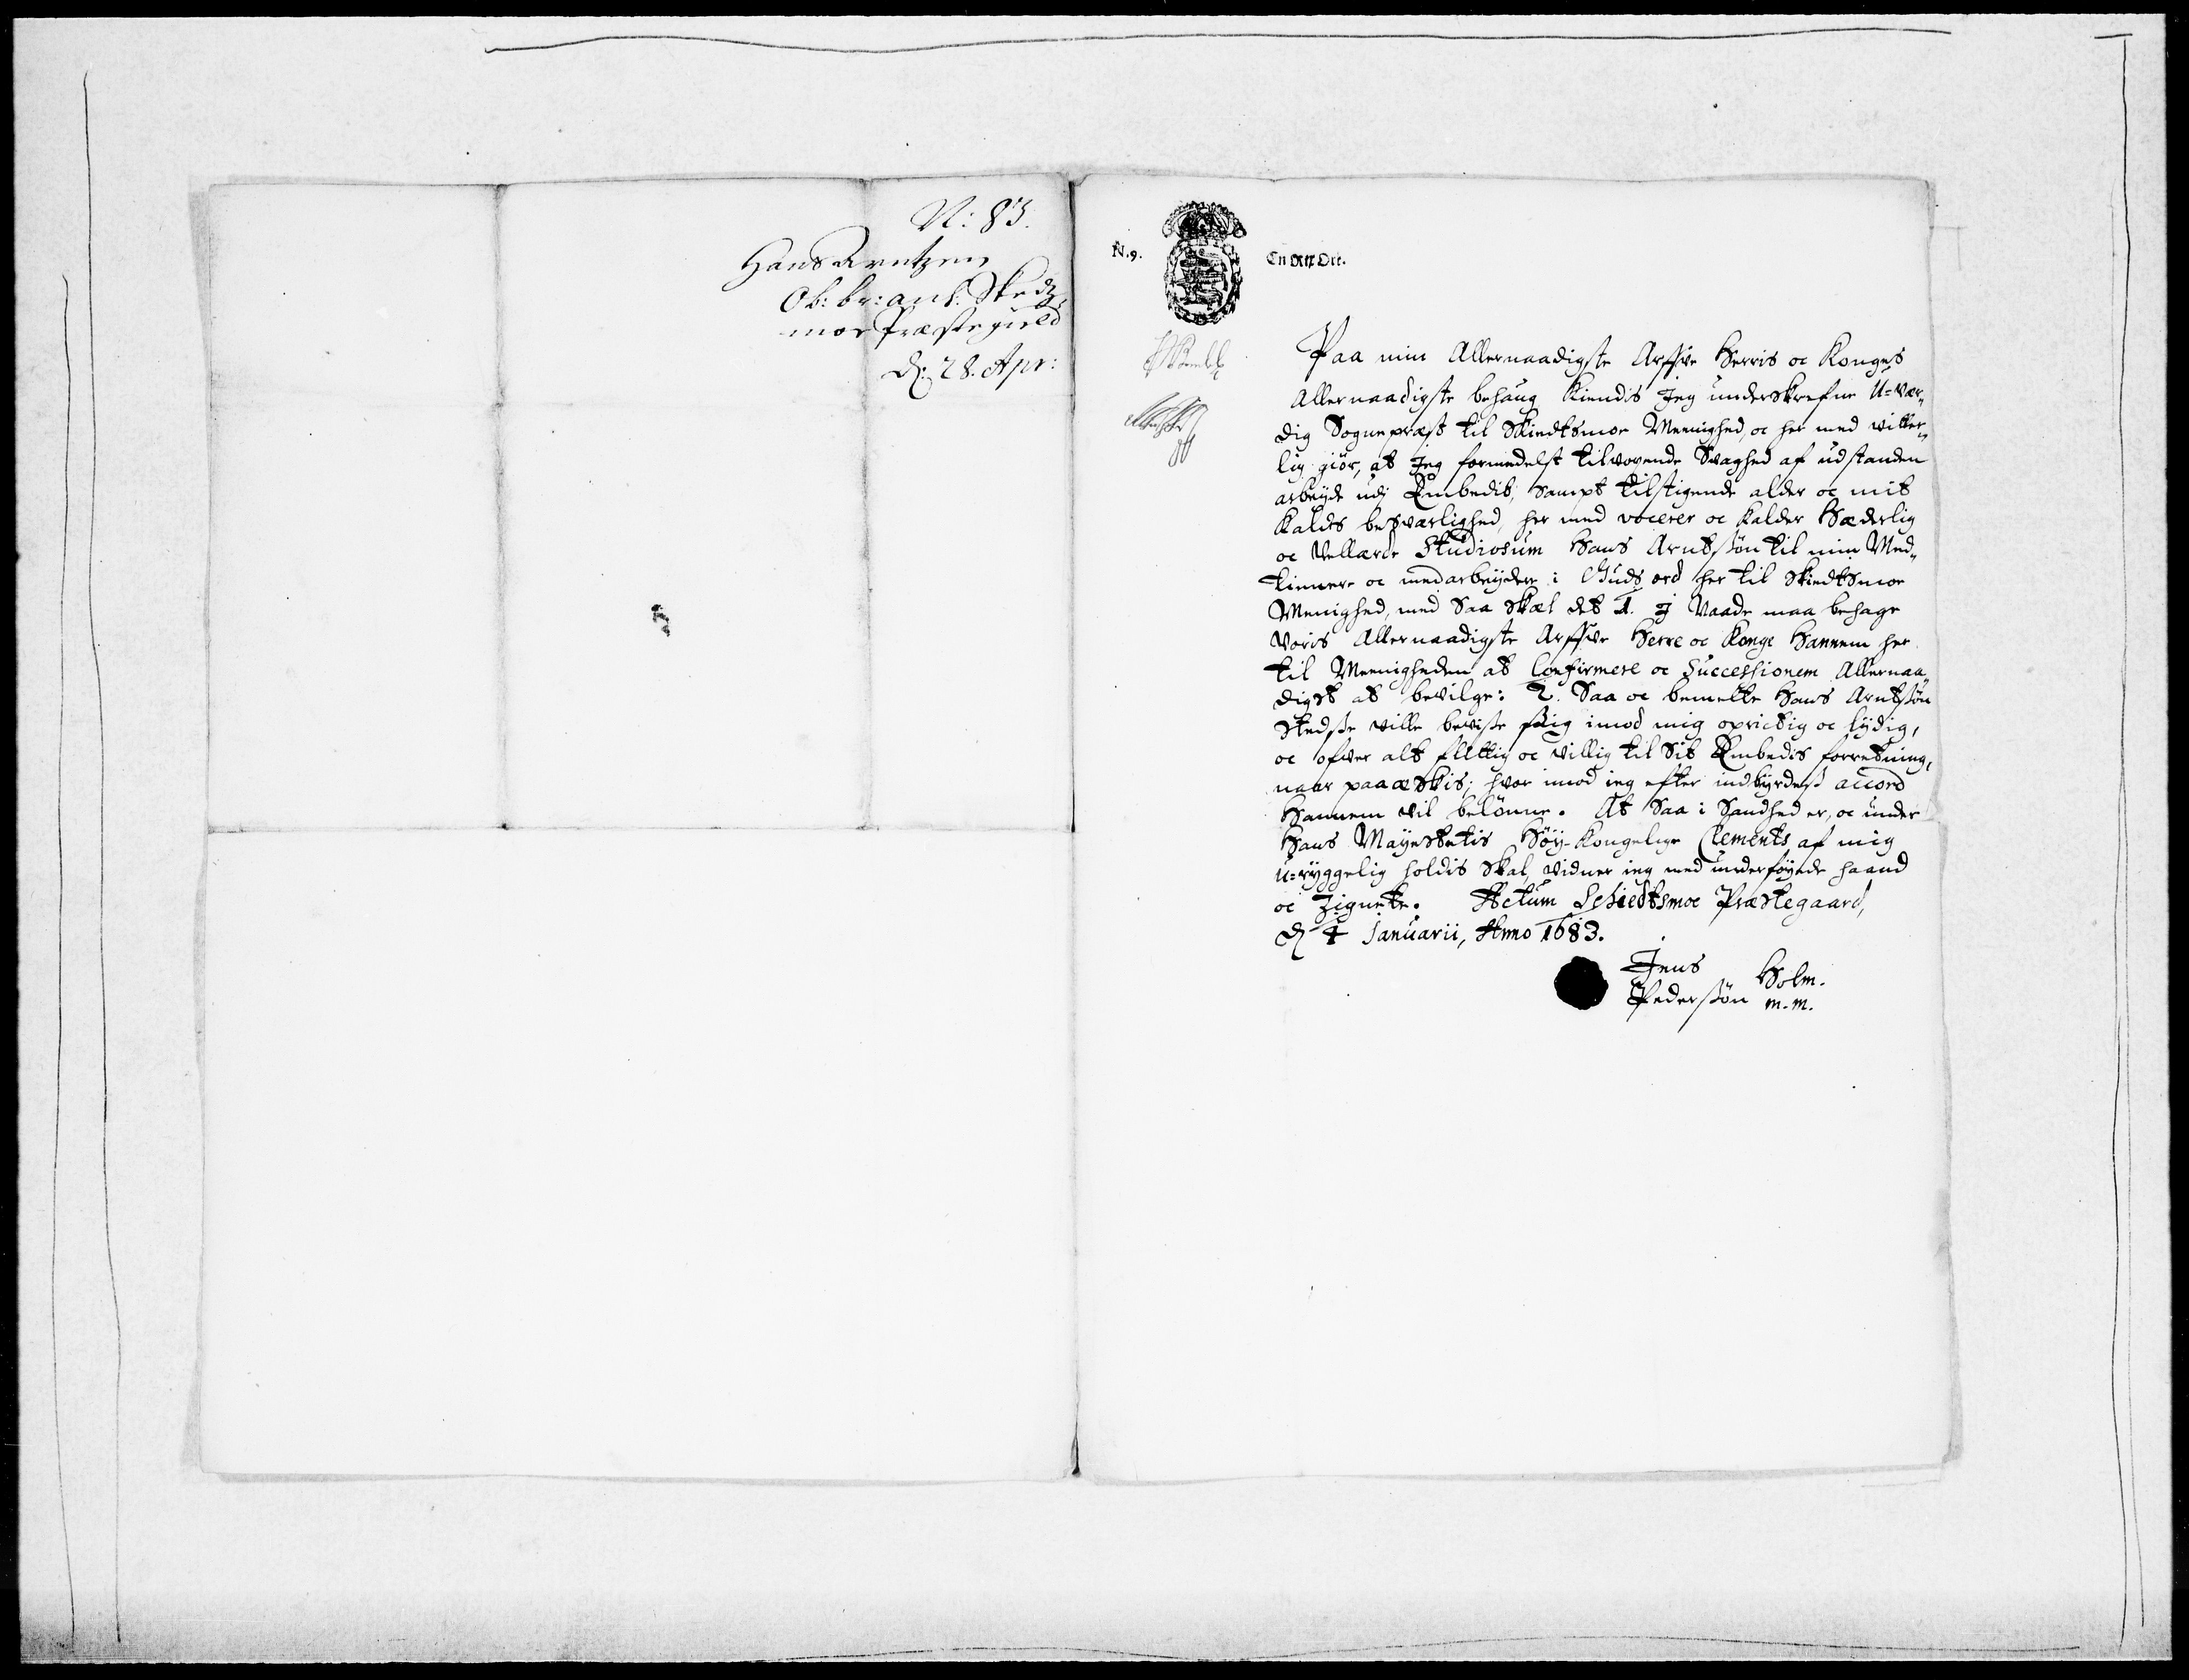 N: 83.
Hans Arntzen
Ob: br: anl: Skedz,
moe Præstegield
d: 28. Apr:
N. 9.
En Ort.
Paa min Allernaadigste Arffve Herris oc Konges
Allernaadigste behaug Kiendis Jeg underskrefne U=vær„
dig Sognepræst til Skiedtsmoe Meenighed, oc her med vitter„
lig giör, at Jeg formedelst tilvoxende Svaghed af udstanden
arbeyde udj Embedit, sampt tilstigende alder oc mit
Kalds besværlighed, her med vocerer oc kalder Hæderlig
oc Vellærde Studiosum Hans Arntssön til min Med„
tienere oc medarbeyder i Guds ord her til Skiedtsmoe
Menighed, med Saa Skæl det 1. J Naade maa behage
Voris Allernaadigste Arffve Herre oc Konge Hannem her
til Meenigheden at Confirmere oc Successionem Allernaa„
digst at bevilge: 2. Saa oc bemelte Hans Arntssön
stedsse ville bevisse sig imod mig oprictig oc lÿdig,
oc ofver alt flittig oc villig til Sit Embedis forretning,
naar paaæskis; hvor imod ieg efter indbyrdess accord
Hannem vil belönne. At Saa i Sandhed er, oc under
Hans Mayestetis Höy-Kongelige Clements af mig
u=ryggelig holdis skal, vidner ieg med underföyede haand
oc Zignete. Actum Schiedtsmoe Præstegaard,
d 4 Januarii, Anno 1683.
Jens Holm.
Pederssön m.m.